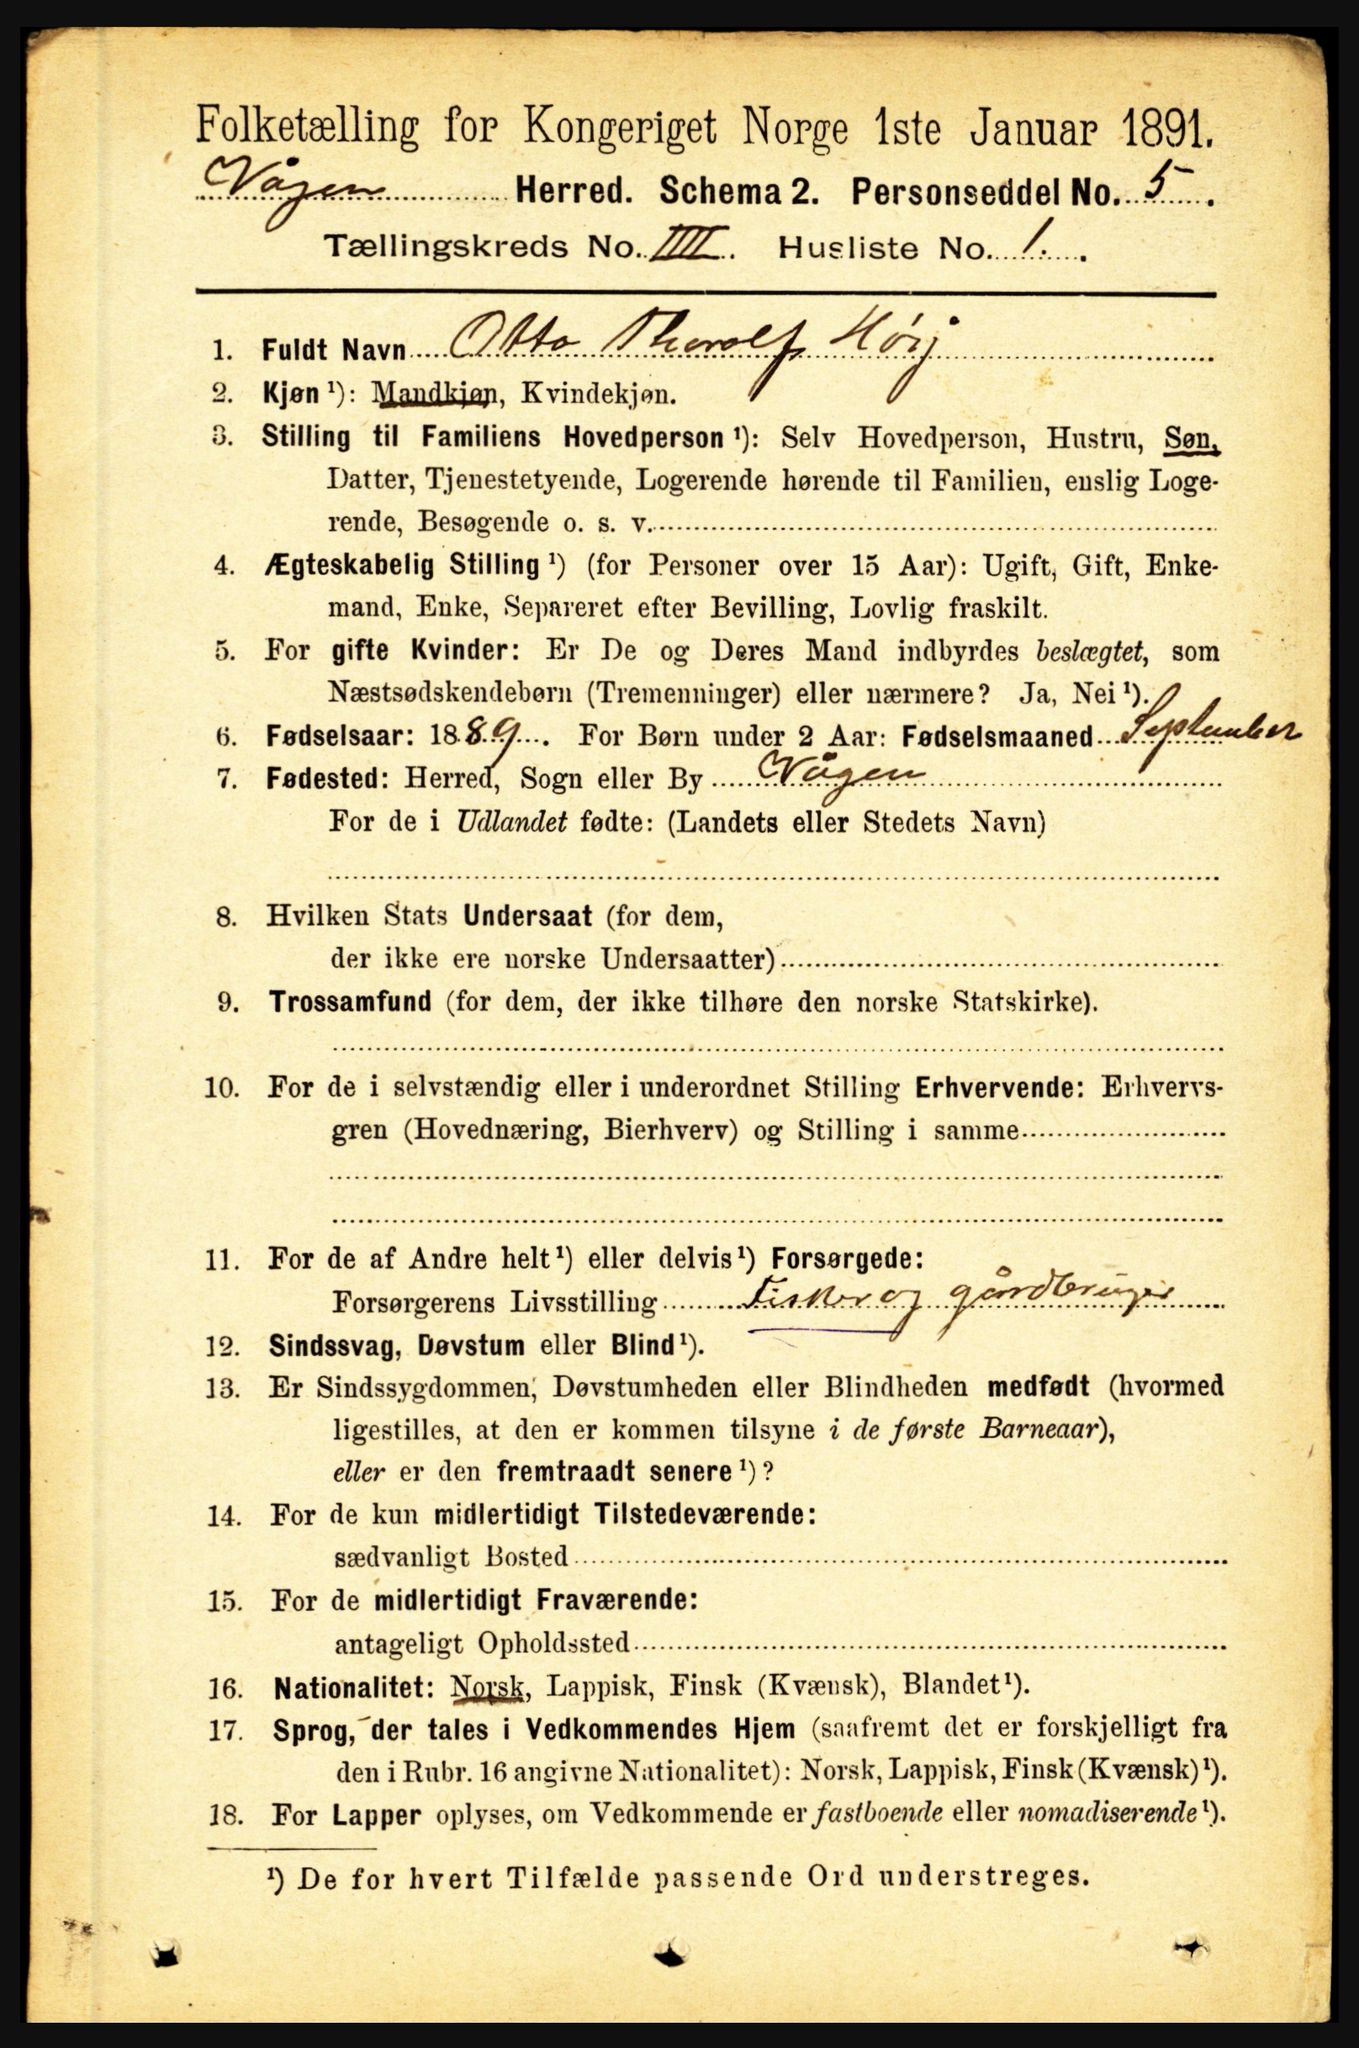 Folketælling for Kongeriget Norge 1ste Januar 1891.
Vågen Herred. Schema 2. Personseddel No. 5.
Tællingskreds No. IIII. Husliste No. 1.
1. Fuldt Navn Otto Thorolf Høij
2. Kjøn ¹): Mandkjøn, Kvindekjøn.
3. Stilling til Familiens Hovedperson ¹): Selv Hovedperson, Hustru, Søn,
Datter, Tjenestetyende, Logerende hørende til Familien, enslig Loge-
rende, Besøgende o. s. v.
4. Ægteskabelig Stilling ¹) (for Personer over 15 Aar): Ugift, Gift, Enke-
mand, Enke, Separeret efter Bevilling, Lovlig fraskilt.
5. For gifte Kvinder: Er De og Deres Mand indbyrdes beslægtet, som
Næstsødskendebørn (Tremenninger) eller nærmere? Ja, Nei ¹).
6. Fødselsaar: 1889. For Børn under 2 Aar: Fødselsmaaned September
7. Fødested: Herred, Sogn eller By Vågen
For de i Udlandet fødte: (Landets eller Stedets Navn)
8. Hvilken Stats Undersaat (for dem,
der ikke ere norske Undersaatter)
9. Trossamfund (for dem, der ikke tilhøre den norske Statskirke).
10. For de i selvstændig eller i underordnet Stilling Erhvervende: Erhvervs-
gren (Hovednæring, Bierhverv) og Stilling i samme
11. For de af Andre helt ¹) eller delvis ¹) Forsørgede:
Forsørgerens Livsstilling Fisker og gårdbruger
12. Sindssvag, Døvstum eller Blind ¹).
13. Er Sindssygdommen, Døvstumheden eller Blindheden medfødt (hvormed
ligestilles, at den er kommen tilsyne i de første Barneaar),
eller er den fremtraadt senere ¹)?
14. For de kun midlertidigt Tilstedeværende:
sædvanligt Bosted
15. For de midlertidigt Fraværende:
antageligt Opholdssted
16. Nationalitet: Norsk, Lappisk, Finsk (Kvænsk), Blandet ¹).
17. Sprog, der tales i Vedkommendes Hjem (saafremt det er forskjelligt fra
den i Rubr. 16 angivne Nationalitet): Norsk, Lappisk, Finsk (Kvænsk) ¹).
18. For Lapper oplyses, om Vedkommende er fastboende eller nomadiserende ¹).
¹) De for hvert Tilfælde passende Ord understreges.